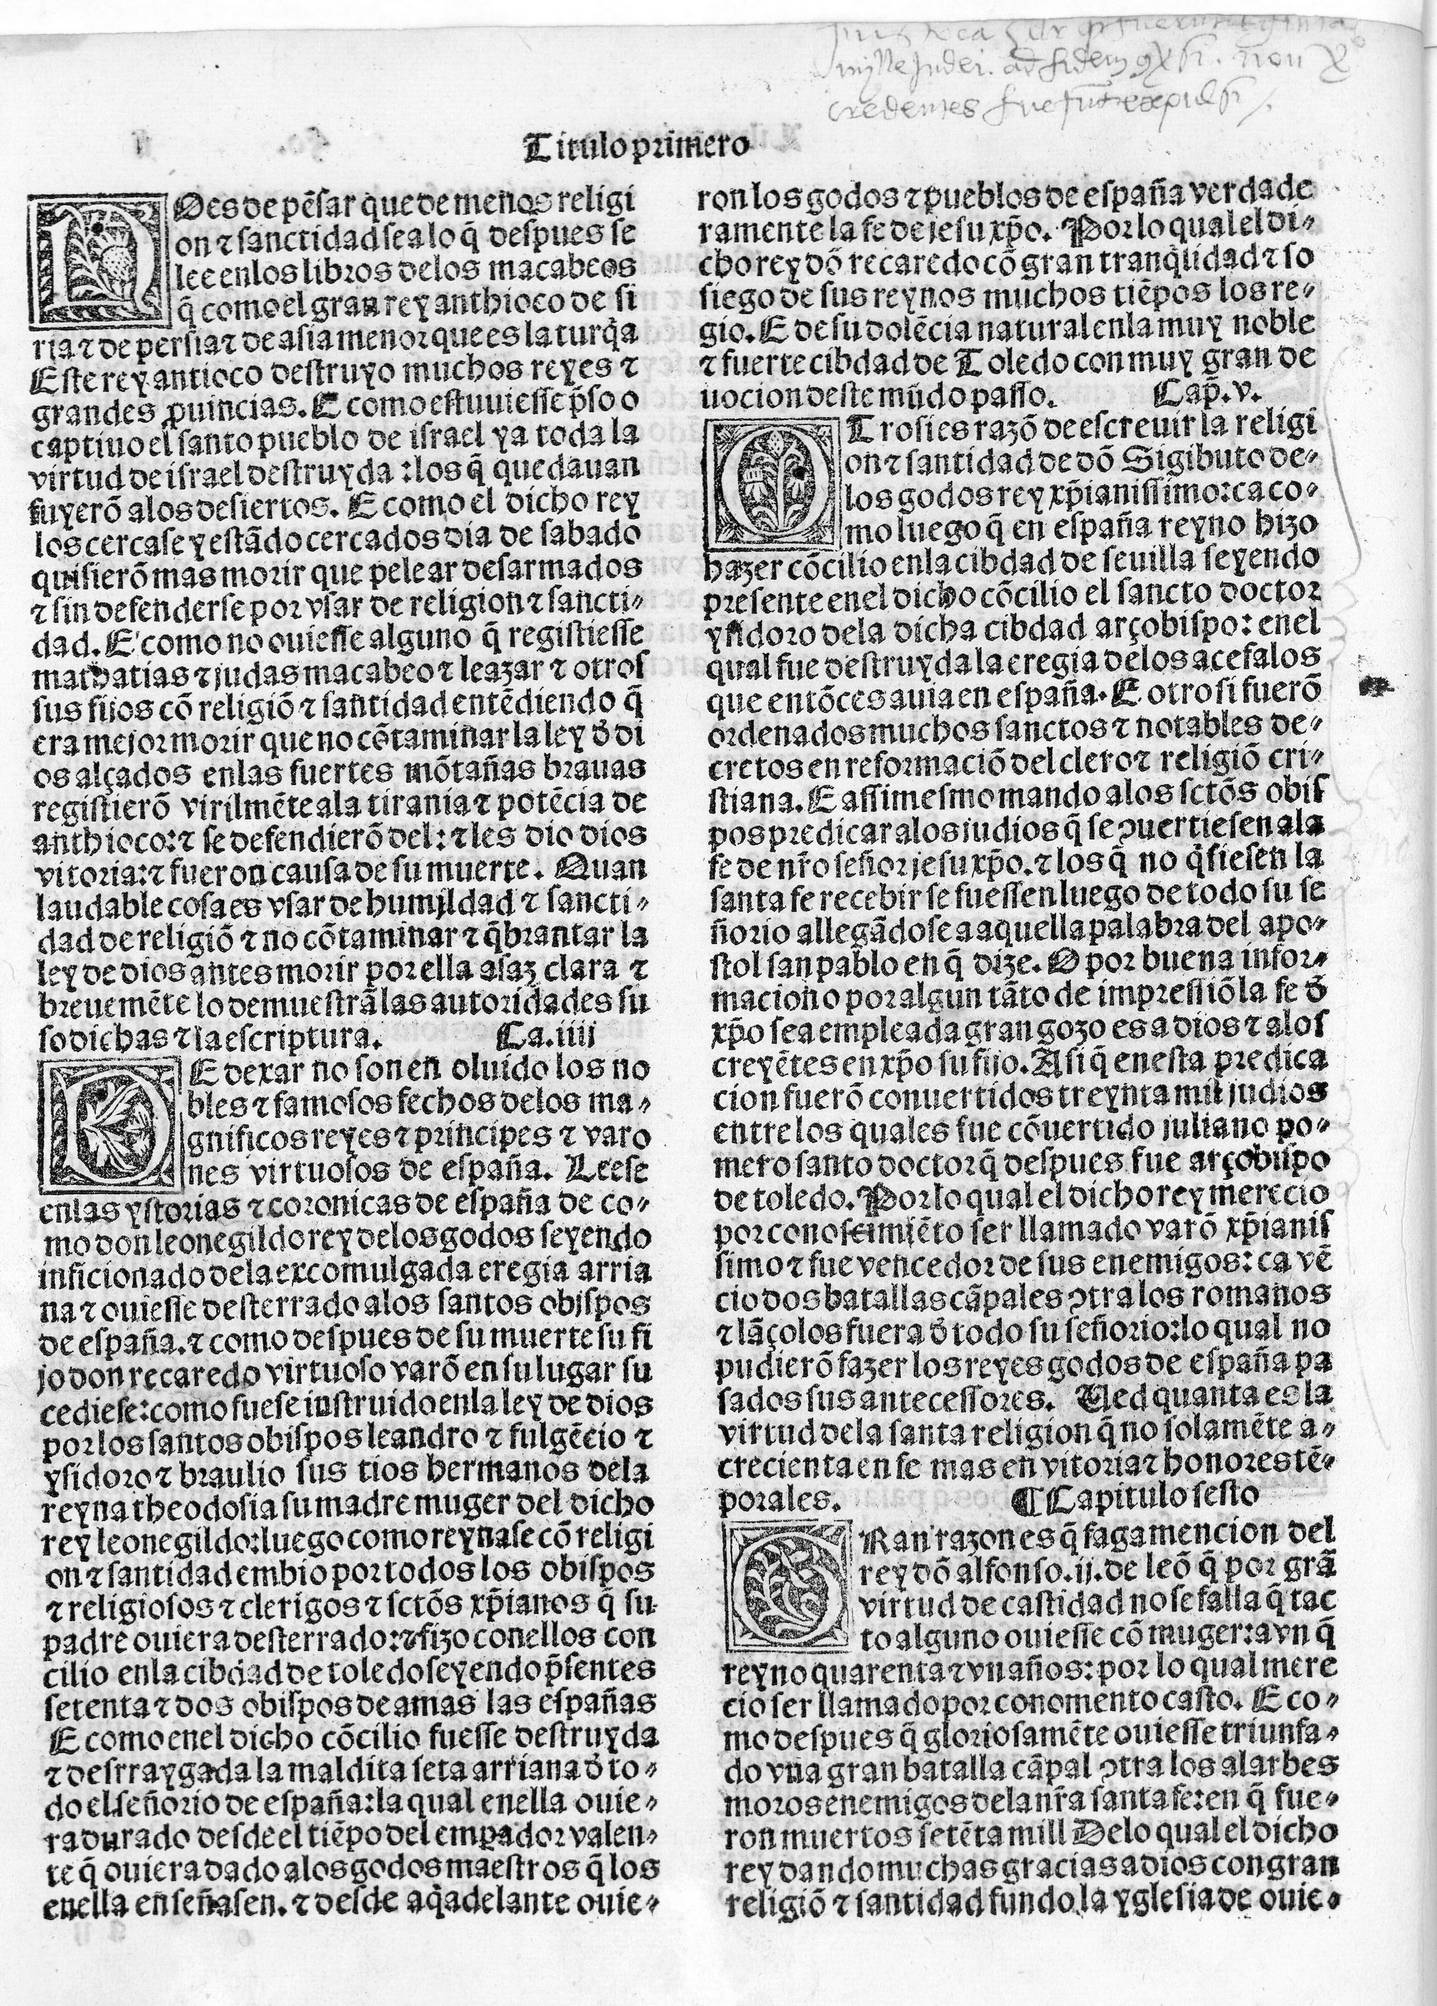 Titulo primero
NOes de pẽsar que de menos religi
on ⁊ sanctidad sea lo q̃ despues se
lee enlos libros delos macabeos
q̃ como el gran rey anthioco de si
ria ⁊ de persia ⁊ de asia menor que es la turq̃a
Este rey antioco destruyo muchos reyes ⁊
grandes ꝓuincias. E como estuuiesse p̃so o
captiuo el santo pueblo de israel ya toda la
virtud de israel destruyda : los q̃ quedauan
fuyerõ alos desiertos. E como el dicho rey
los cercase y estãdo cercados dia de sabado
quisierõ mas morir que pelear desarmados
⁊ sin defenderse por vsar de religion ⁊ sancti-
dad. E como no ouiesse alguno q̃ registiesse
mathatias ⁊ judas macabeo ⁊ leazar ⁊ otros
sus fijos cõ religiõ ⁊ santidad entẽdiendo q̃
era mejor morir que no cõtaminar la ley d̃ di
os alçados enlas fuertes mõtañas brauas
registierõ virilmẽte ala tirania ⁊ potẽcia de
anthioco: ⁊ se defendierõ del: ⁊ les dio dios
vitoria: ⁊ fueron causa de su muerte. Quan
laudable cosa es vsar de humildad ⁊ sancti-
dad de religiõ ⁊ no cõtaminar ⁊ q̃brantar la
ley de dios antes morir por ella asaz clara ⁊
breuemẽte lo demuestrã las autoridades su
so dichas ⁊ la escriptura. Ca. iiij
DE dexar no son en oluido los no
bles ⁊ famosos fechos delos ma-
gnificos reyes ⁊ principes ⁊ varo
nes virtuosos de españa. Leese
enlas ystorias ⁊ coronicas de españa de co-
mo don leonegildo rey delos godos seyendo
inficionado dela excomulgada eregia arria
na ⁊ ouiesse desterrado alos santos obispos
de españa. ⁊ como despues de su muerte su fi
jo don recaredo virtuoso varõ en su lugar su
cediese: como fuese instruido enla ley de dios
por los santos obispos leandro ⁊ fulgẽcio ⁊
ysidoro ⁊ braulio sus tios hermanos dela
reyna theodosia su madre muger del dicho
rey leonegildo: luego como reynase cõ religi
on ⁊ santidad embio por todos los obispos
⁊ religiosos ⁊ clerigos ⁊ sctõs xp̃ianos q̃ su
padre ouiera desterrado: ⁊ fizo con ellos con
cilio enla cibdad de toledo seyendo p̃sentes
setenta ⁊ dos obispos de amas las españas
E como enel dicho cõcilio fuesse destruyda
⁊ desrraygada la maldita seta arriana d̃ to-
do el señorio de españa: la qual enella ouie-
ra durado desde el tiẽpo del empador valen-
te q̃ ouiera dado alos godos maestros q̃ los
enella enseñasen. ⁊ desde aq̃ adelante ouie-
ron los godos ⁊ pueblos de españa verdade
ramente la fe de jesu xp̃o. Por lo qual el di-
cho rey dõ recaredo cõ gran tranq̃lidad ⁊ so
siego de sus reynos muchos tiẽpos los re-
gio. E de su dolẽcia natural enla muy noble
⁊ fuerte cibdad de Toledo con muy gran de
uocion deste mũdo passo. Cap̃. v.
OTrosi es razõ de escreuir la religi
on ⁊ santidad de dõ Sigibuto de-
los godos rey xp̃ianissimo: ca co-
mo luego q̃ en españa reyno hizo
hazer cõcilio enla cibdad de seuilla seyendo
presente enel dicho cõcilio el sancto doctor
ysidoro dela dicha cibdad arçobispo: enel
qual fue destruyda la eregia delos acefalos
que entõces auia en españa. E otrosi fuerõ
ordenados muchos sanctos ⁊ notables de-
cretos en reformaciõ del clero ⁊ religiõ cri-
stiana. E assimesmo mando alos sctõs obis
pos predicar alos judios q̃ se ↄuertiesen ala
fe de nr̃o señor jesu xp̃o. ⁊ los q̃ no q̃siesen la
santa fe recebir se fuessen luego de todo su se
ñorio allegãdose a aquella palabra del apo-
stol san pablo en q̃ dize. O por buena infor-
macion o por algun tãto de impressiõ la fe d̃
xp̃o sea empleada gran gozo es a dios ⁊ alos
creyẽtes en xp̃o su fijo. Asi q̃ enesta predica
cion fuerõ conuertidos treynta mil judios
entre los quales fue cõuertido juliano po-
mero santo doctor q̃ despues fue arçobispo
de toledo. Por lo qual el dicho rey merecio
por conoscimiẽto ser llamado varõ xp̃ianis
simo ⁊ fue vencedor de sus enemigos: ca vẽ
cio dos batallas cãpales ↄtra los romanos
⁊ lãçolos fuera d̃ todo su señorio: lo qual no
pudierõ fazer los reyes godos de españa pa
sados sus antecessores. Ued quanta es la
virtud dela santa religion q̃ no solamẽte a-
crecienta en fe mas en vitoria ⁊ honores tẽ-
porales. ¶Capitulo sesto
GRan razon es q̃ faga mencion del
rey dõ alfonso .ij. de leõ q̃ por grã
virtud de castidad no se falla q̃ tac
to alguno ouiesse cõ muger: avn q̃
reyno quarenta ⁊ vn años: por lo qual mere
cio ser llamado por conomento casto. E co-
mo despues q̃ gloriosamẽte ouiesse triunfa-
do vna gran batalla cãpal ↄtra los alarbes
moros enemigos dela nr̃a santa fe: en q̃ fue-
ron muertos setẽta mill Delo qual el dicho
rey dando muchas gracias a dios con gran
religiõ ⁊ santidad fundo la yglesia de ouie-